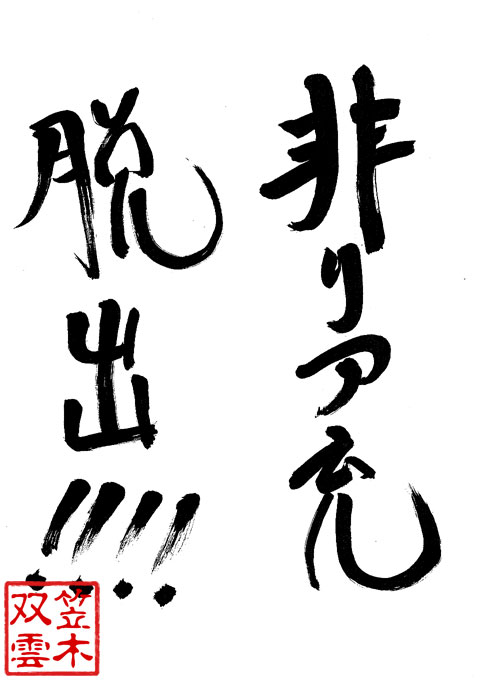 非リア充
脱出!!!!
笠木
双雲